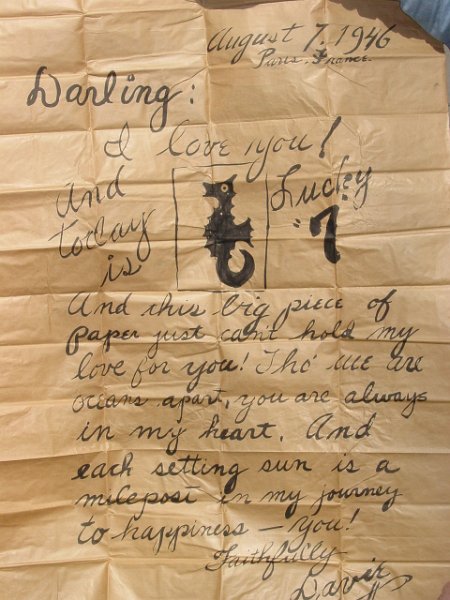 August 7, 1946
Paris, France.
Darling:
I love you!
And today is
Lucky "7"
And this big piece of
Paper just can't hold my
love for you! Tho' we are
oceans apart, you are always
in my heart. And
each setting sun is a
milepost in my journey
to happiness — you!
Faithfully